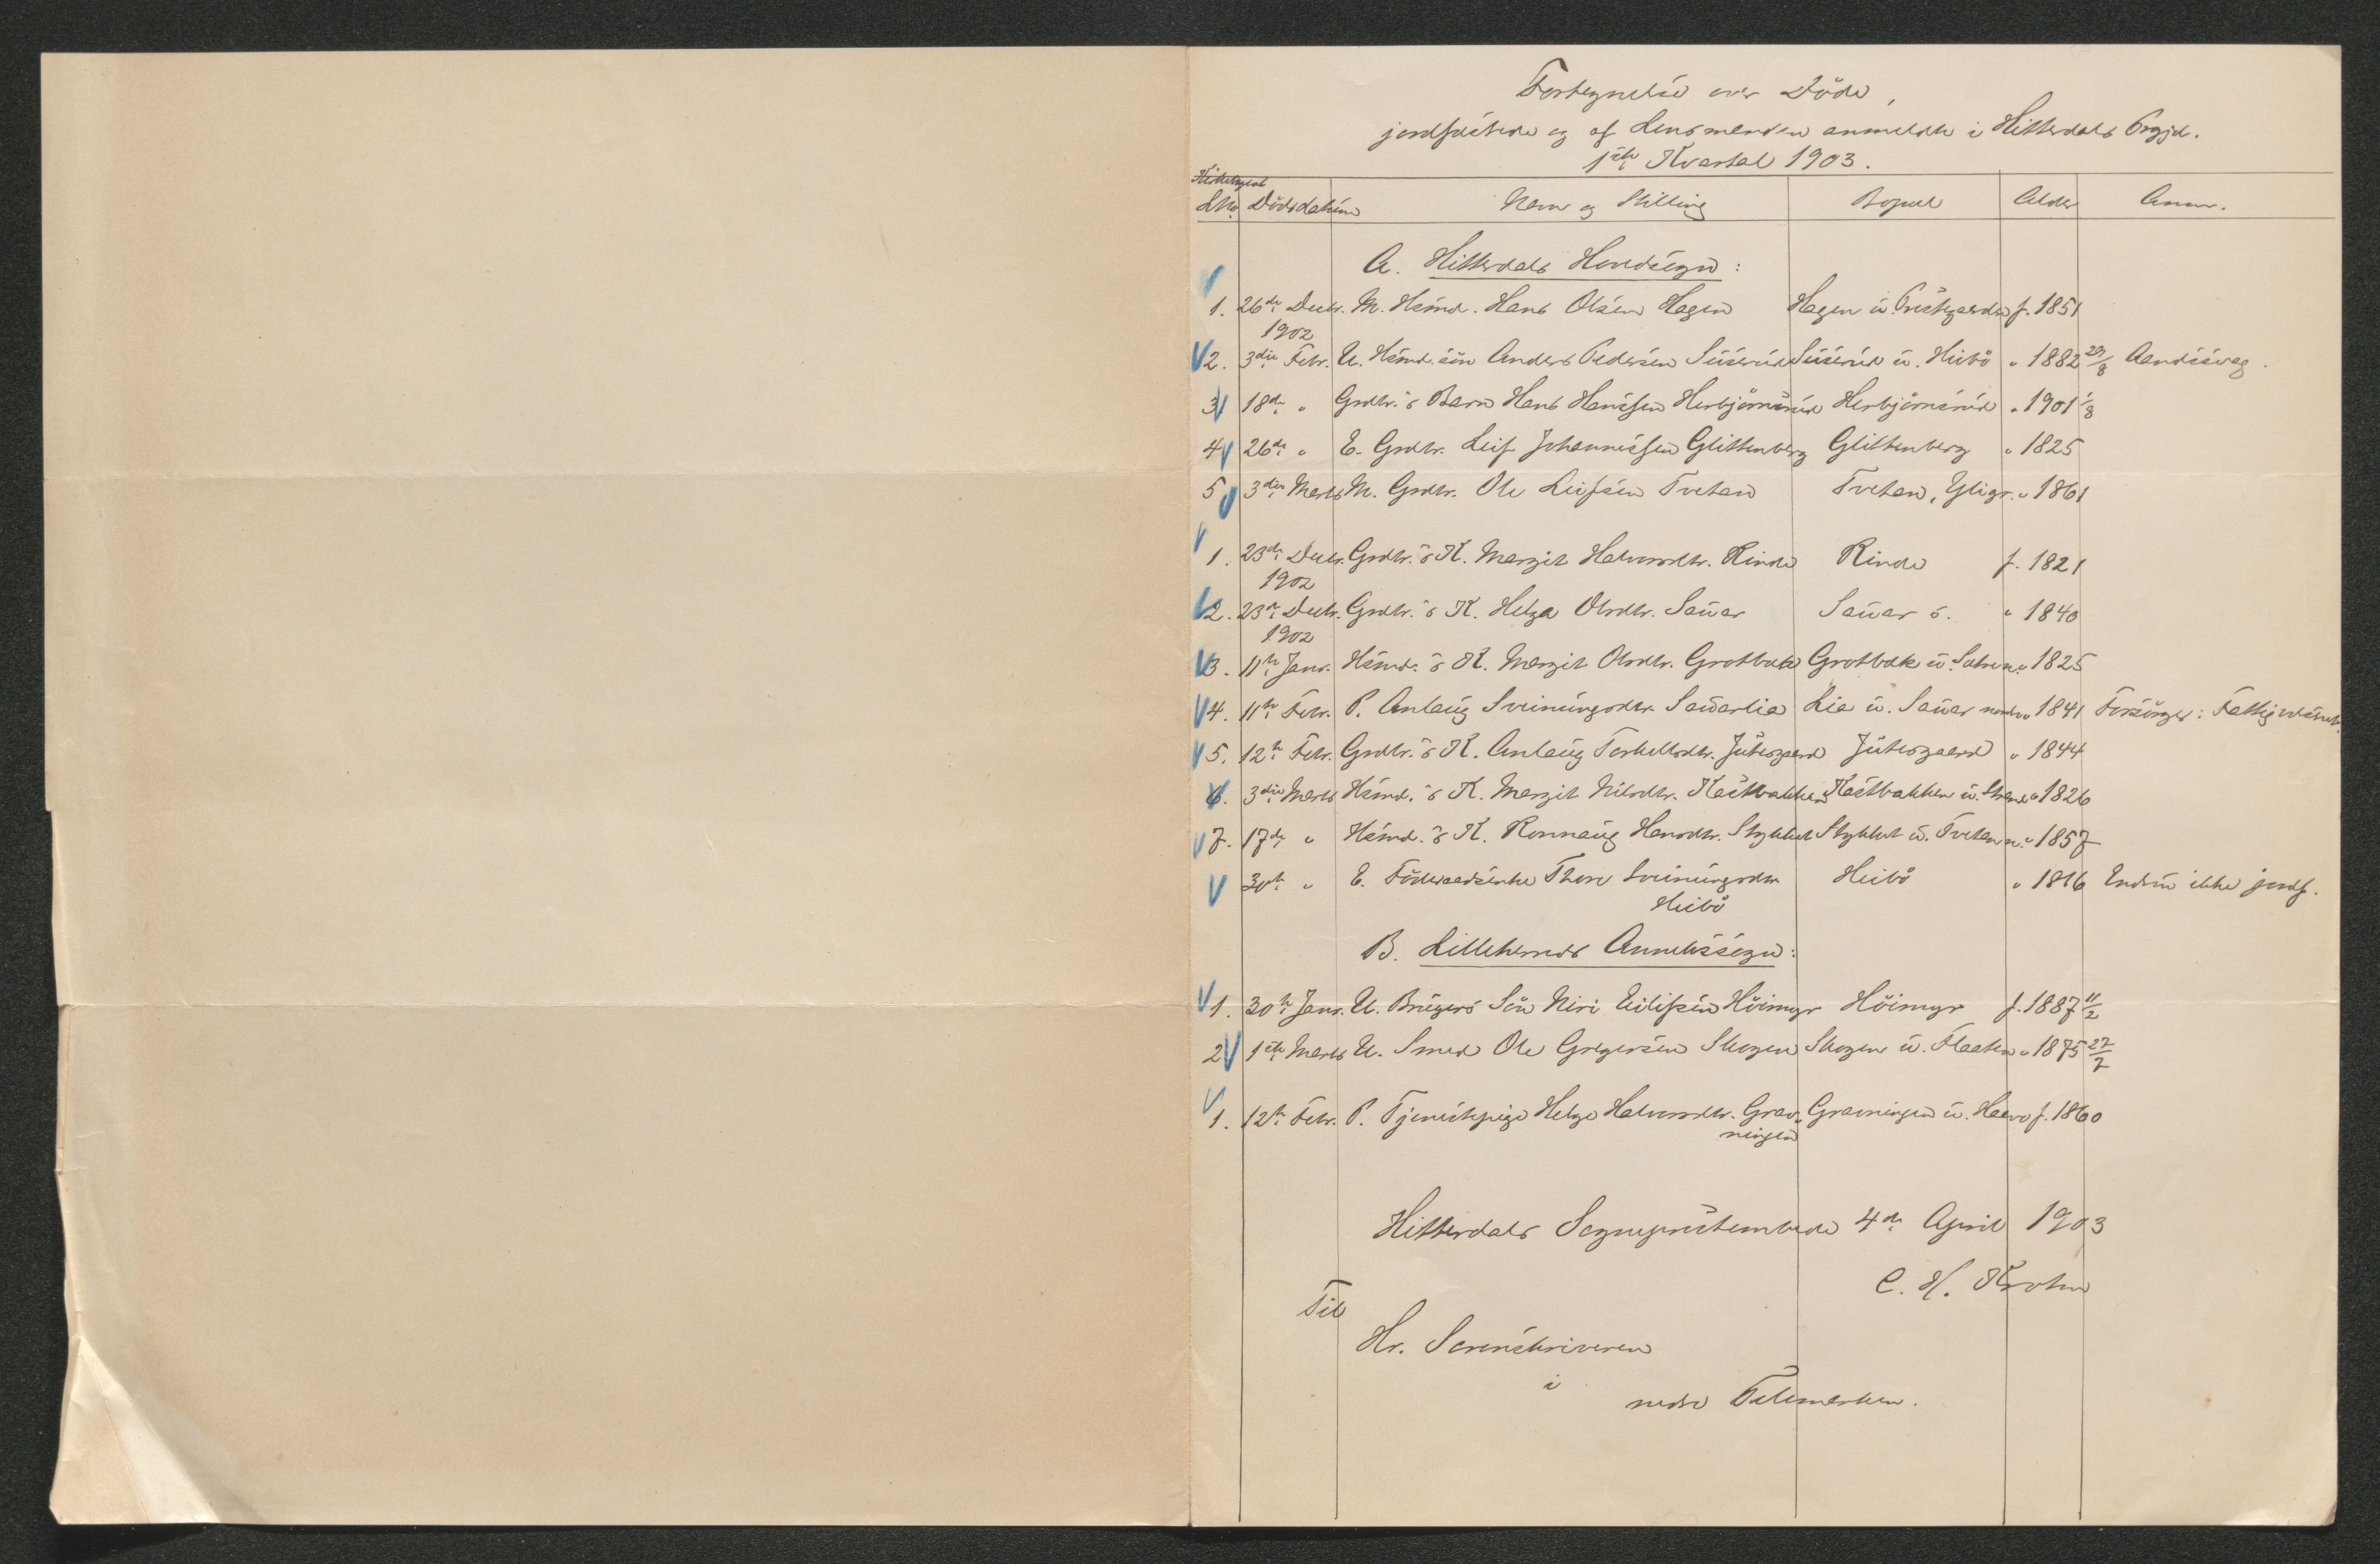 Fortegnelse over Döde,
jordfæstede og af Lensmanden anmeldte i Hitterdals Prgjd.
1ste Kvartal 1903.
Kirkebogens
LNo. Dödsdatum Navn og Stilling Bopæl Alder Anm.
A. Hitterdals Hovedsogn:
1. 26de Decbr. M. Hsmd. Hans Olsen Hagen Hagen u. Præstegaarden f. 1851
1902
2. 3die Febr. U. Hsmd. sön Anders Pedersen Süserud Süserud u. Hiibö " 1882 29/8 Aandssvag.
3 18de " Grdbr.s Barn Hans Hanssen Herbjörnsrud Herbjörnsrud " 1901 1/8
4 26de " E. Grdbr. Leif Johannessen Glittenberg Glittenberg " 1825
5 3die Marts M. Grdbr. Ole Leifsen Tveten Tveten, Yligr. " 1861
1. 23de Decbr. Grdbr.s K. Margit Halvorsdtr. Rinde Rinde f. 1821
1902
2. 23de Decbr. Grdbr.s K. Helga Olsdtr. Sauar Sauar s. " 1840
1902
3. 11te Janr. Hsmd.s K. Margit Olsdtr. Grotbæk Grotbæk u. Sætren " 1825
4. 11te Febr. P. Anlaug Sveinungsdtr. Sauarlia Lia u. Sauar nordre " 1841 Forsörger: Fattigvæsenet.
5. 12te Febr. Grdbr.s K. Anlaug Torkelsdtr. Jutesgaard Jutesgaard " 1844
6. 3die Marts Hsmd.s K. Margit Nilsdtr. Kastbakken Kastbakken u. Strand " 1826
7. 17de " Hsmd.s K. Ronnaug Hansdtr. Stykket Stykket u. Tveten n. " 1857
30te " E. Föderaadsenke Thore Sveinungsdtr. Hiibö " 1816 Endnu ikke jordf.
Hiibö
B. Lilleherreds Annekssogn:
1. 30te Janr. U. Brugers Sön Niri Eilifsen Höimyr Höimyr f. 1887 11/2
2 1ste Marts U. Smed Ole Gregersen Skogen Skogen u. Flaaten " 1875 27/7
1. 12te Febr. P. Tjenestepige Helge Halvorsdtr. Grav- Gravningen u. Haave f. 1860
ningen
Hitterdals Sogneprestembede 4de April 1903
C. H. Krohn
Til
Hr. Sorenskriveren
i
nedre Telemarken.